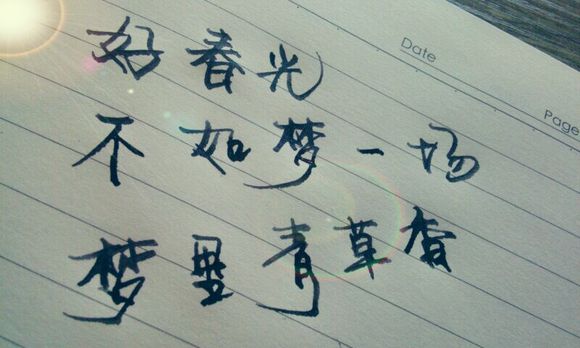 Date
Page
好春光
不如梦一场
梦里青草香